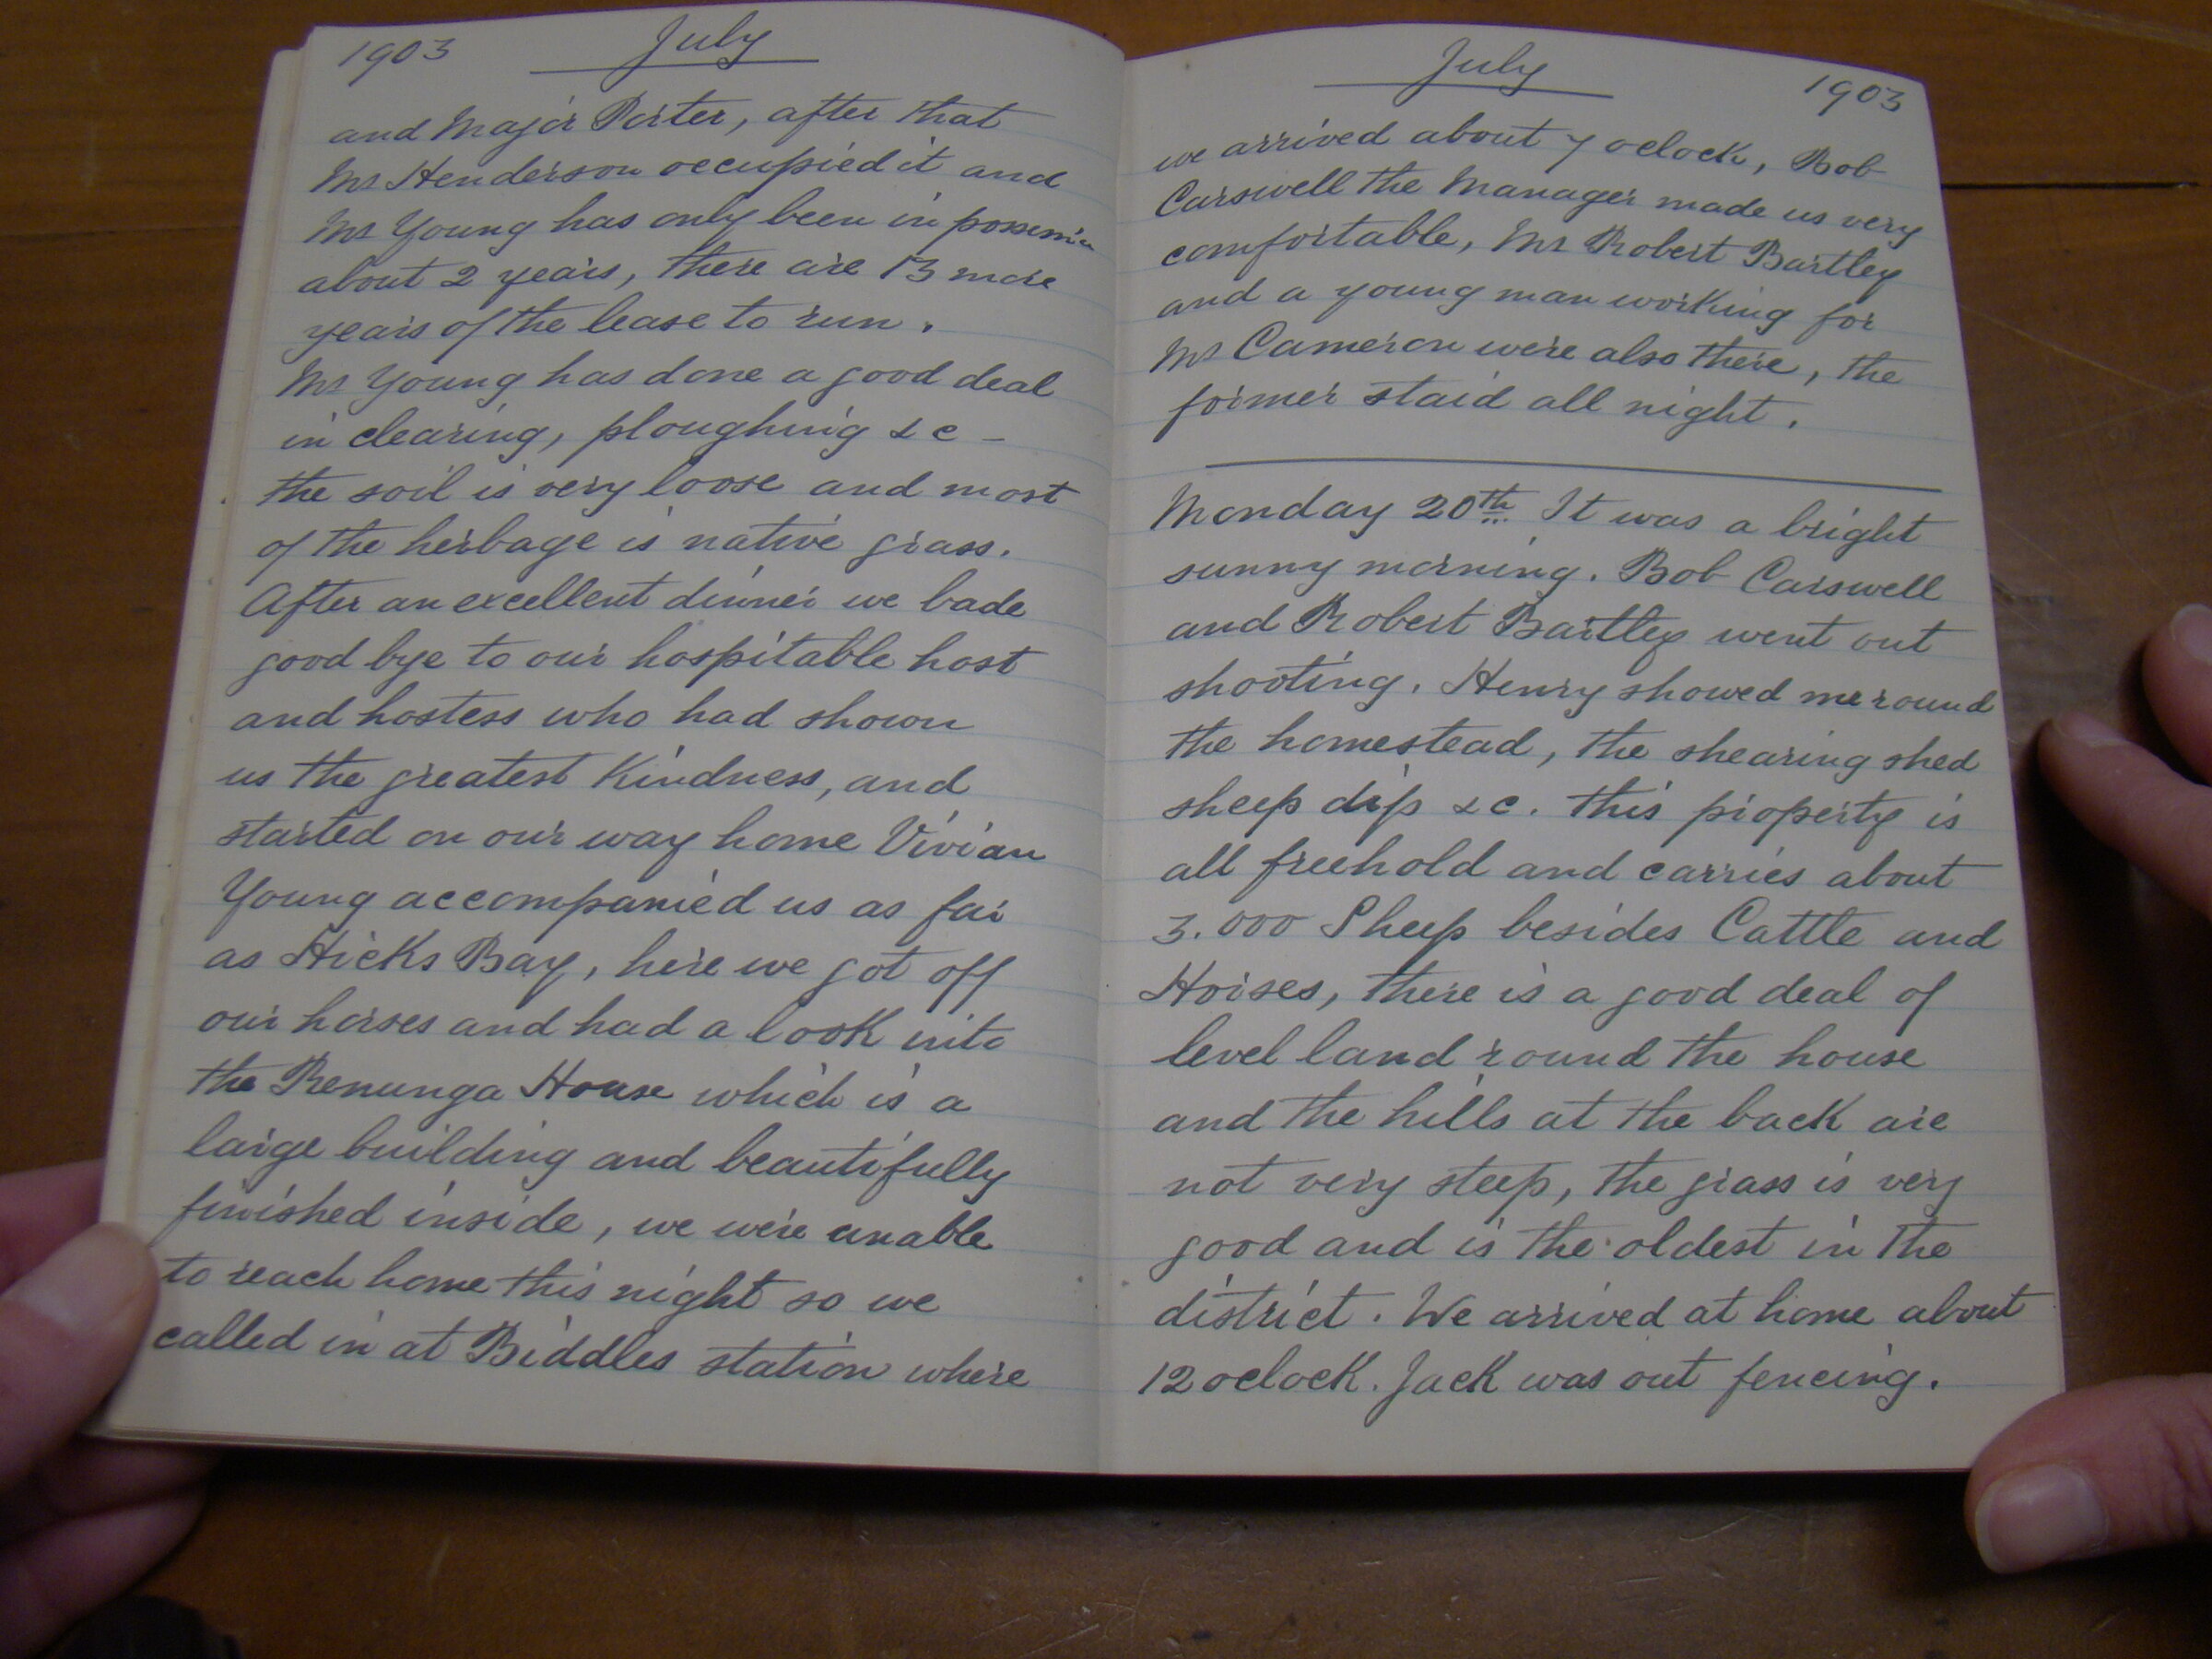 1903 July
and Major Porter, after that
Mr Henderson occupied it and
Mr Young has only been in possession
about 2 years, there are 13 more
years of the lease to run.
Mr Young has done a good deal
in clearing, ploughing &c -
the soil is very loose and most
of the herbage is native grass.
After an excellent dinner we bade
good bye to our hospitable host
and hostess who had shown
us the greatest Kindness, and
started on our way home Vivian
Young accompanied us as far
as Hicks Bay, here we got off
our horses and had a look into
the Renunga House which is a
large building and beautifully
finished inside, we were unable
to reach home this night so we
called in at Biddles station where
July 1903
we arrived about 7 oclock, Bob
Carswell the Manager made us very
comfortable, Mr Robert Bartley
and a young man working for
Mr Cameron were also there, the
former staid all night.
Monday 20th It was a bright
sunny morning. Bob Carswell
and Robert Bartley went out
shooting. Henry showed me round
the homestead, the shearing shed
sheep dip &c. this property is
all freehold and carries about
3.000 Sheep besides Cattle and
Horses, there is a good deal of
level land round the house
and the hills at the back are
not very steep, the grass is very
good and is the oldest in the
district. We arrived at home about
12 oclock. Jack was out fencing.